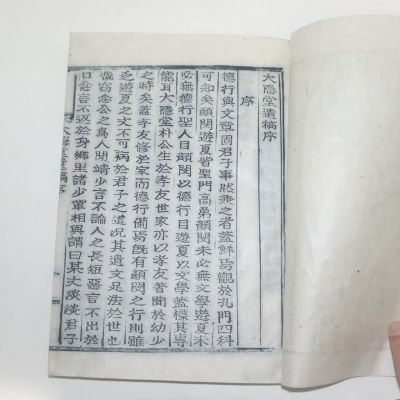 大隱堂遺稿序
序
德行與文章固君子事然兼之者蓋鮮焉觀於孔門四科
可知矣顔閔遊夏皆聖門高弟顔閔未必無文學遊夏未
必無德行聖人目顔閔以德行目遊夏以文學蓋標其專
能耳大隱堂朴公生於孝友世家亦以孝友著聞於幼少
之時矣蓋孝友修於家而德行備焉旣有顔閔之行則雖
乏遊夏之文不可病於君子之道况其遺文足法於世也
哉竊念公之爲人閒靖少言不論人之長短惡言不出於
口忿言不返於身鄕里諸少輩相與謂曰某丈淡淡君子